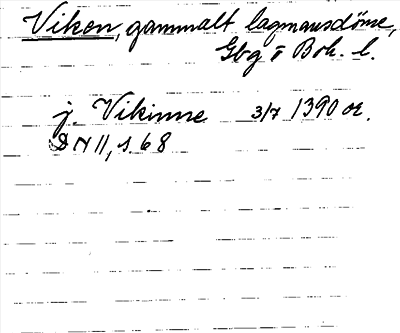 Viken, gammalt lagmansdöme,
Gbg o Boh. l.
j. Vikinne 3/7 1390 or.
DN II, s. 68